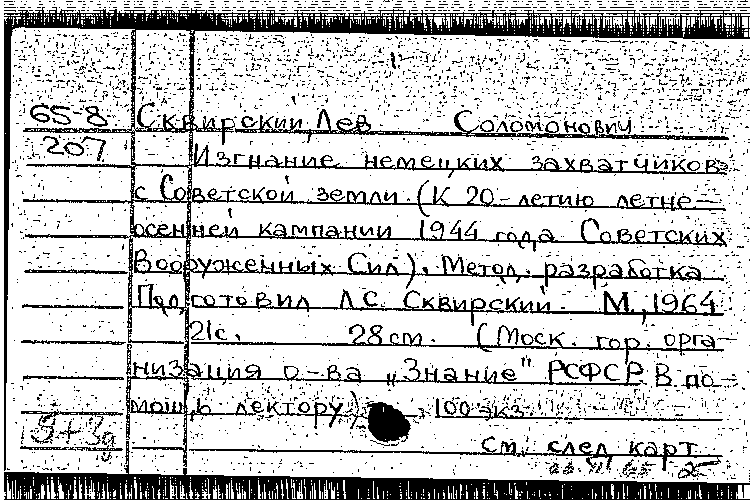 65-8 Сквирский, Лев Соломонович
207 Изгнание немецких захватчиков
с Советской земли (К 20-летию летне-
осенней кампании 1944 года Советских
Вооруженных Сил). Метод. разработка
Подготовил Л.С. Сквирский. М., 1964
21с. 28см. (Моск. гор. орга-
низация о-ва „Знание" РСФСР. В по-
мощь лектору) 100 экз.
см. след. карт